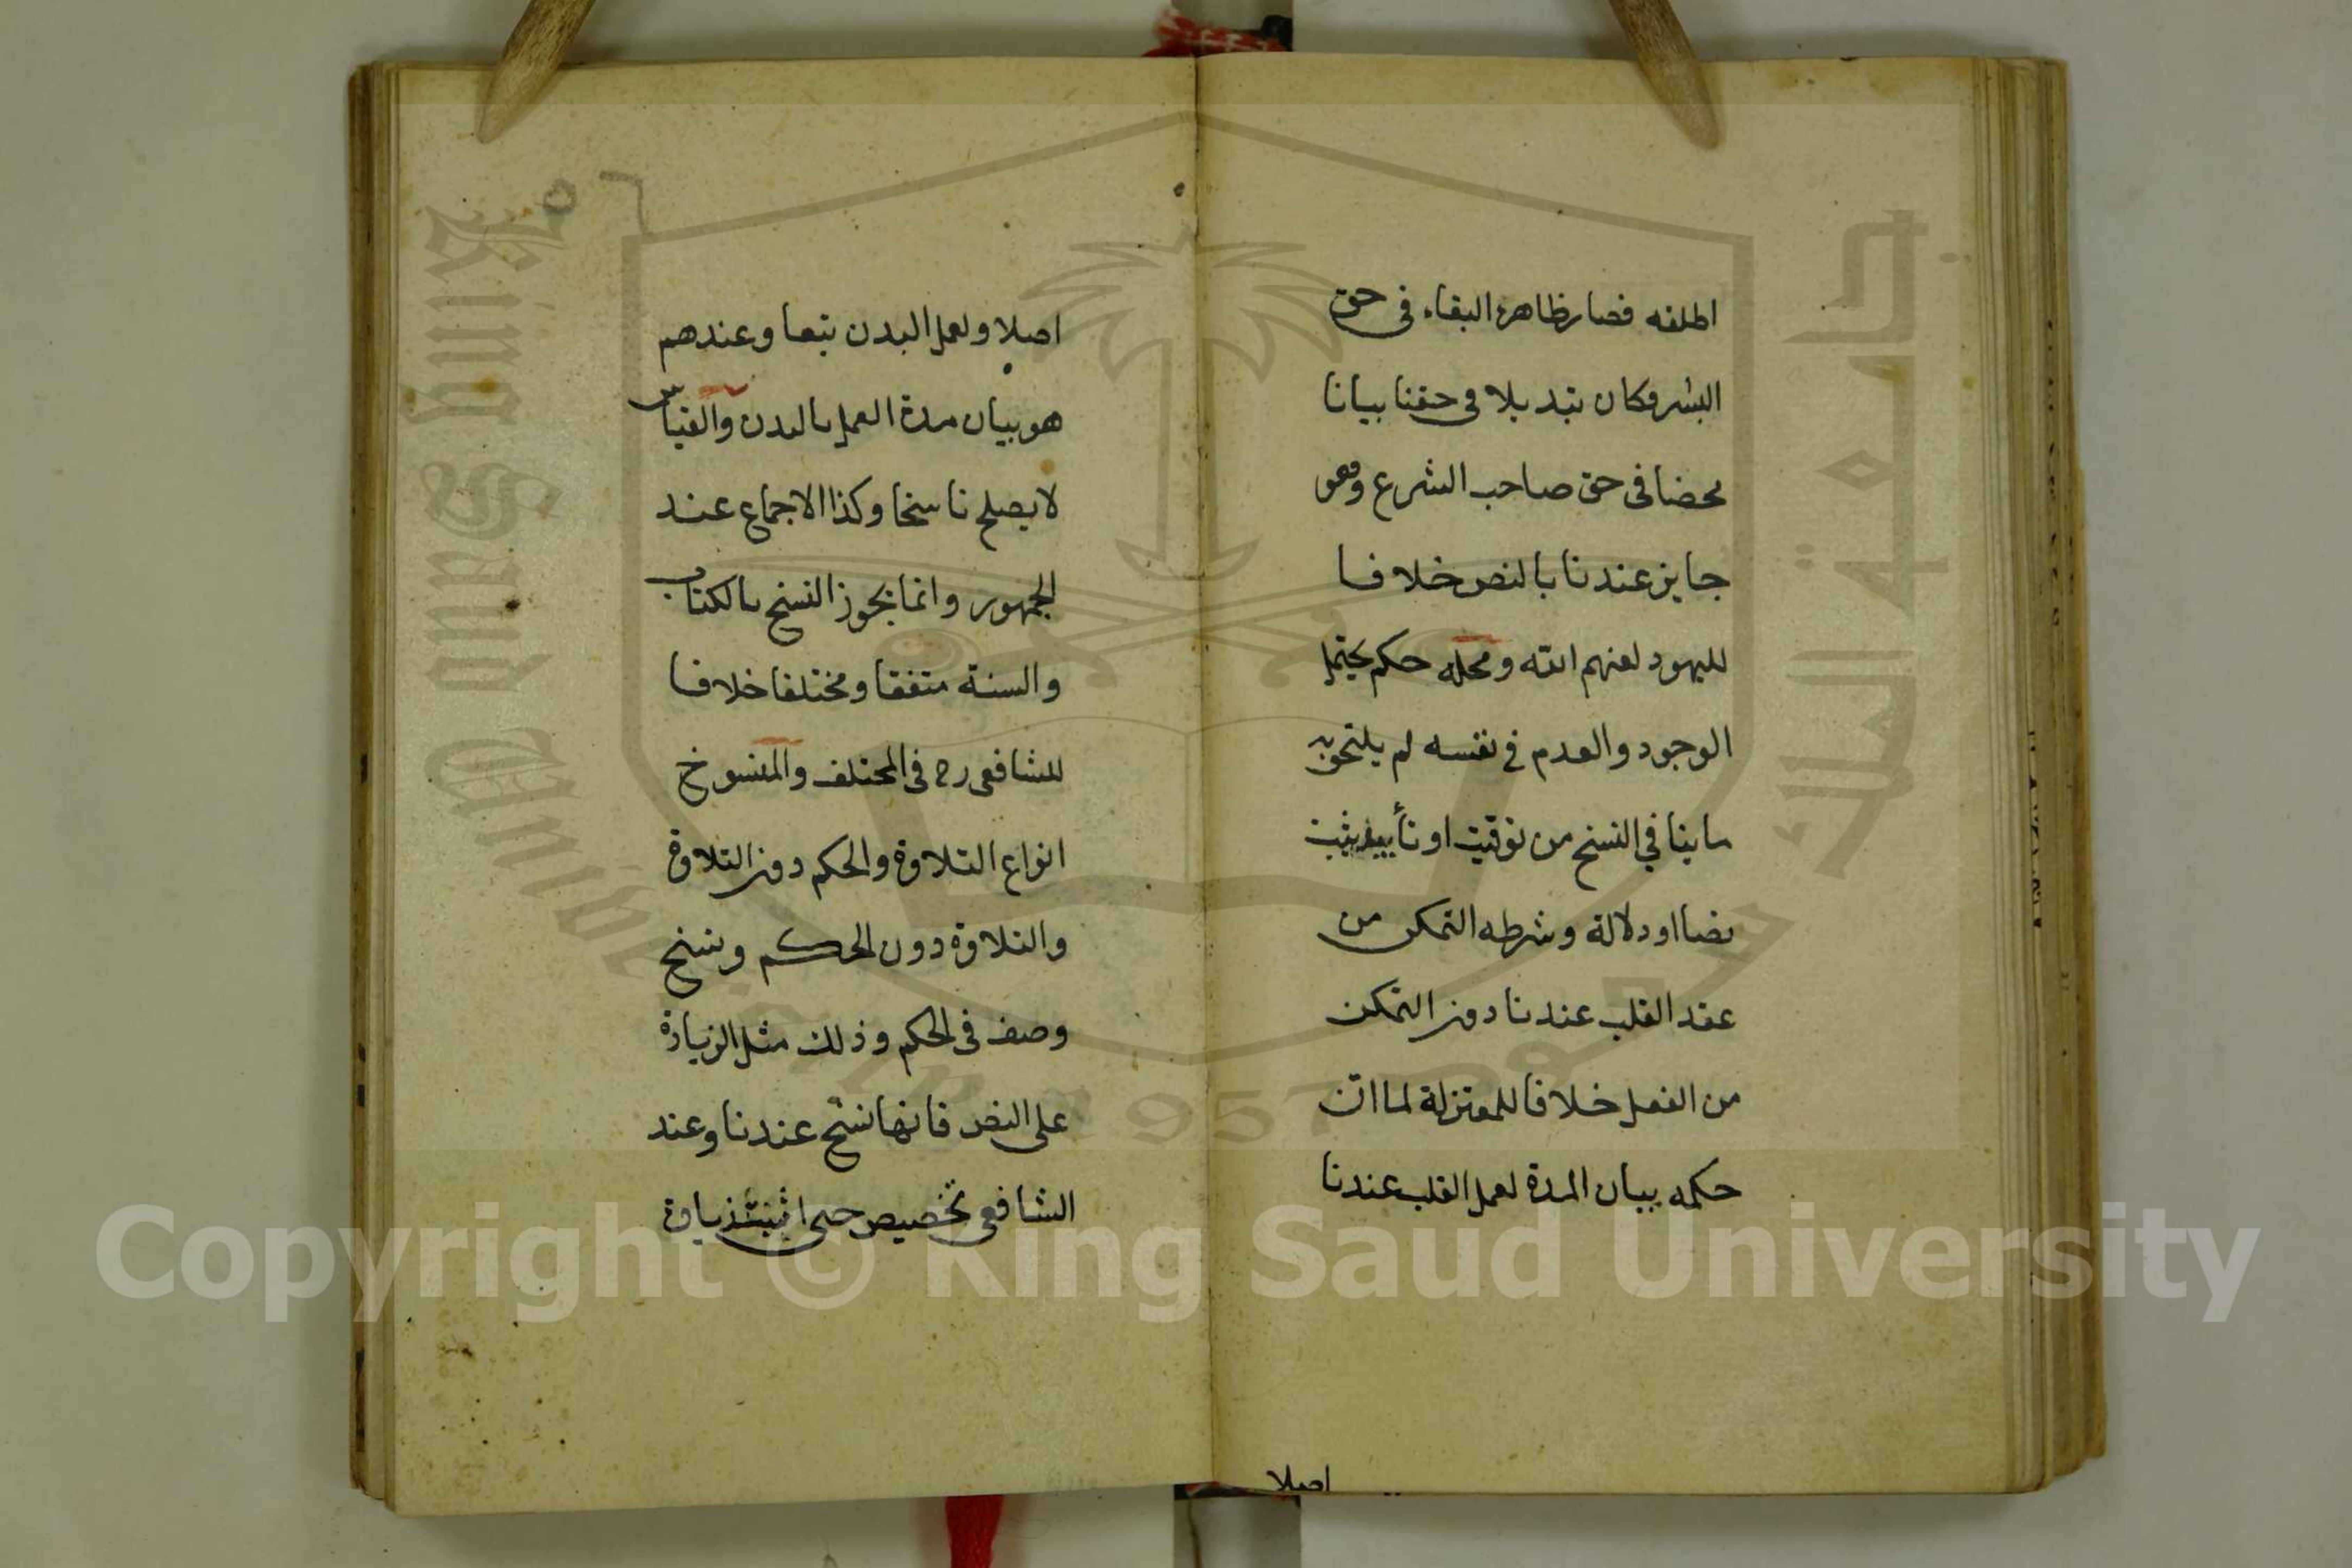 اطلقه فصار ظاهره البقاء فى حق
البشر فكان تبديلا فى حقنا بيانا
محضا فى حق صاحب الشرع وهو
جايز عندنا بالنص خلافا
لليهود لعنهم الله ومحله حكم يحتمل
الوجود والعدم فى نفسه لم يلتحق به
ما ينافي النسخ من توقيت او تأبيد يثبت
نصا او دلالة وشرطه التمكن من
عقد القلب عندنا دون التمكن
من الفعل خلافا للمعتزلة لما ان
حكمه بيان المدة لعمل القلب عندنا
اصلا
٥
اصلا ولعمل البدن تبعا وعندهم
هو بيان مدة العمل بالبدن والقياس
لا يصلح ناسخا وكذا الاجماع عند
الجمهور وانما يجوز النسخ بالكتاب
والسنة متفقا ومختلفا خلافا
للشافعى رح فى المختلف والمنسوخ
انواع التلاوة والحكم دون التلاوة
والتلاوة دون الحكم ونسخ
وصف فى الحكم وذلك مثل الزيادة
على النص فانها نسخ عندنا وعند
الشافعى تخصيص حتى اثبت زيادة
King Saud University
جامعة الملك سعود
1957
Copyright © King Saud University